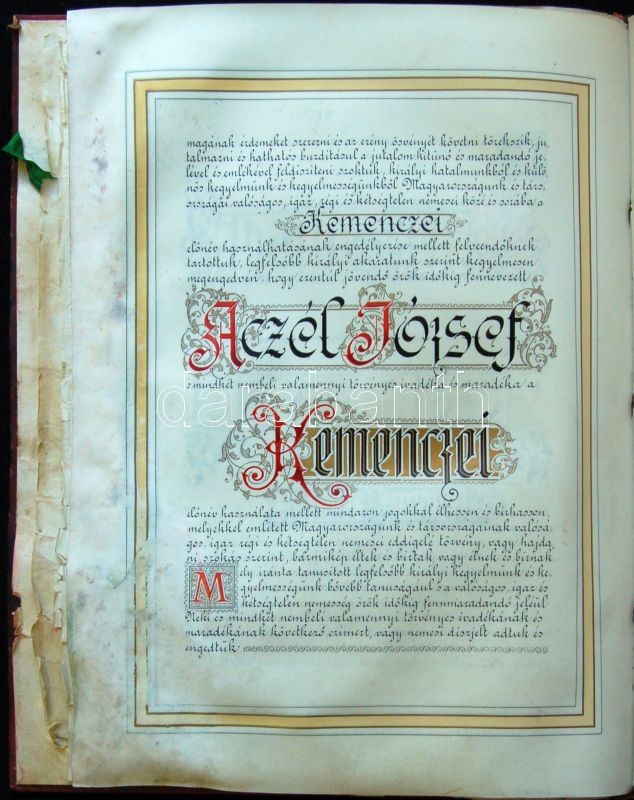 magának érdemeket szerezni és az erény ösvényét követni törekszik, ju,
talmazni és hathatós buzdításul a jutalom kitünő és maradandó je,
lével és emlékével feldisziteni szoktuk, királyi hatalmunkból és külö,
nös kegyelmünk és kegyelmességünkből Magyarországunk és társ,
országai valóságos, igaz, régi és kétségtelen nemesei közé és sorába a
Kemenczei
előnév használhatásának engedélyezése mellett felveendőknek
tartottuk, legfelsőbb királyi akaratunk szerint kegyelmesen
megengedvén, hogy ezentúl jövendő örök időkig fennevezett
Aczél József
s mindkét nembeli valamennyi törvényes ivadéka és maradéka a
darabanth
Kemenczei
előnév használata mellett mindazon jogokkal élhessen és birhasson,
melyekkel említett Magyarországunk és társországainak valósá,
gos, igaz régi és kétségtelen nemesei eddigelé törvény, vagy hajda,
ni szokás szerint, bármikép éltek és birtak vagy élnek és birnak.
Mely iránta tanusított legfelsőbb királyi kegyelmünk és ke,
gyelmességünk bővebb tanuságául s a valóságos, igaz és
kétségtelen nemesség örök időkig fennmaradandó jeléül
Neki és mindkét nembeli valamennyi törvényes ivadékának és
maradékának következő czimert, vagy nemesi díszjelt adtuk és
engedtük: